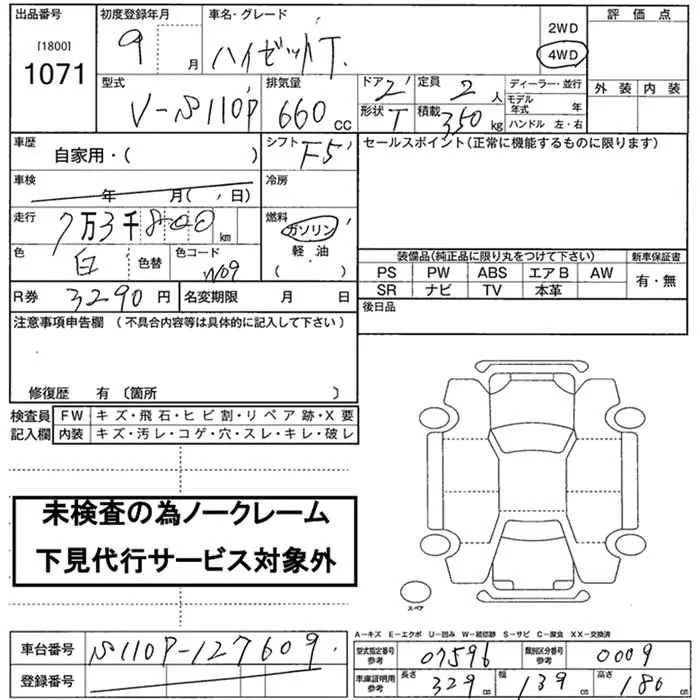 出品番号 初度登録年月 車名・グレード 評価点
[1800]
1071
9 月 ハイゼットT. 2WD
4WD
外装 内装
型式 排気量 ドア 2 定員 2 人 ディーラー・並行
V-S110P 660 CC 形状 T 積載 350 kg モデル年式 年
ハンドル 左・右
車歴 自家用・( ) シフト F5 セールスポイント(正常に機能するものに限ります)
車検 年 月( , 日) 冷房
走行 7万3千800 km 燃料 ガソリン
軽・油
( )
色 白 色替 色コード W09
装備品(純正品に限り丸をつけて下さい) 新車保証書
PS PW ABS エアB AW 有・無
SR ナビ TV 本革
R券 3290 円 名変期限 月 日 後日品
注意事項申告欄 (不具合内容等は具体的に記入して下さい)
修復歴 有〔箇所 〕
検査員 FW キズ・飛石・ヒビ割・リペア跡・X要
記入欄 内装 キズ・汚レ・コゲ・穴・スレ・キレ・破レ
未検査の為ノークレーム
下見代行サービス対象外
スペア
A-キズ E-エクボ U-凹み W-補修跡 S-サビ C-腐食 XX-交換済
車台番号 S110P-127609
登録番号
型式指定番号 参考 07596 類別区分番号 参考 0009
車庫証明用 参考 長さ 329 cm 幅 139 cm 高さ 180 cm